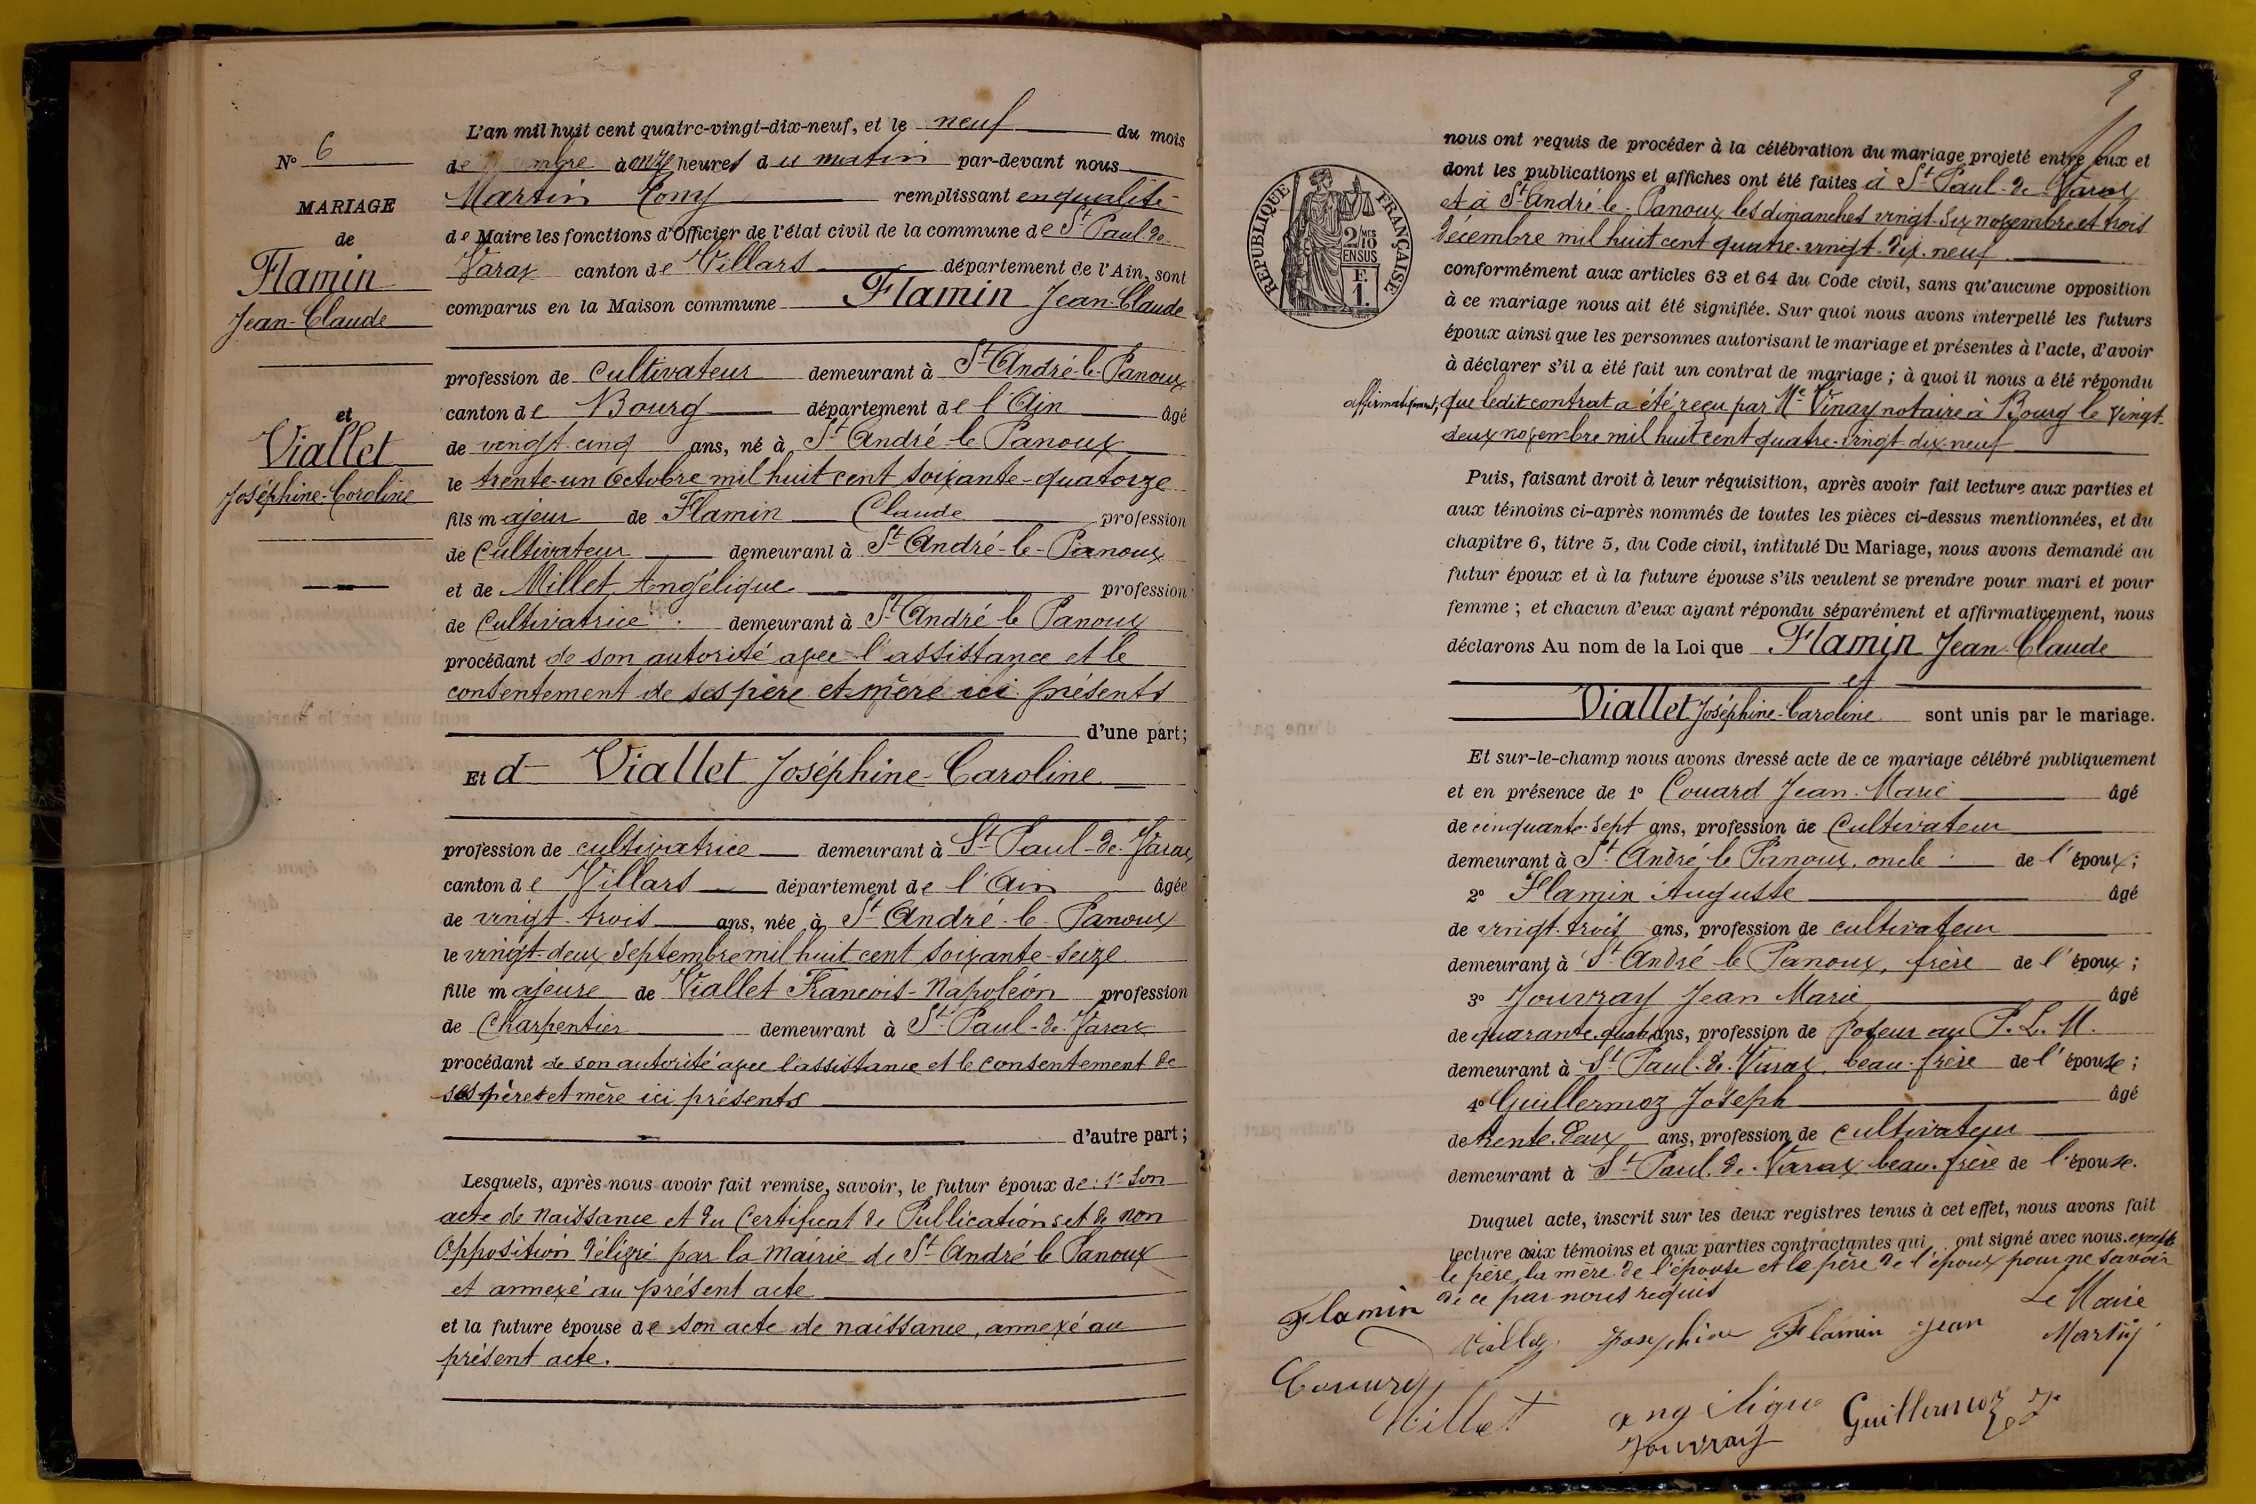 N° 6
MARIAGE
de
Flamin
Jean-Claude
et
Viallet
Joséphine-Caroline
L'an mil huit cent quatre-vingt-dix-neuf, et le neuf du mois
de à onze heures du matin par-devant nous
Martin Tony remplissant en qualité
de Maire les fonctions d'Officier de l'état civil de la commune de St Paul-de-
Varax canton de Villars département de l'Ain, sont
comparus en la Maison commune Flamin Jean-Claude
profession de Cultivateur demeurant à St André-le-Panoux
canton de Bourg département de l'Ain âgé
de vingt-cinq ans, né à St André le Panoux
le trente-un Octobre mil huit cent soixante-quatorze
fils majeur de Flamin Claude profession
de Cultivateur demeurant à St André-le-Panoux
et de Millet Angélique profession
de Cultivatrice demeurant à St André le Panoux
procédant de son autorité avec l'assistance et le
consentement de ses père et mère ici présents
d'une part;
Et d Viallet Joséphine-Caroline
profession de cultivatrice demeurant à St Paul-de-Varax
canton de Villars département de l'Ain âgée
de vingt-trois ans, née à St André-le-Panoux
le vingt-deux Septembre mil huit cent soixante-seize
fille majeure de Viallet François-Napoléon profession
de Charpentier demeurant à St Paul-de-Varax
procédant de son autorité avec l'assistance et le consentement de
ses père et mère ici présents
d'autre part;
Lesquels, après nous avoir fait remise, savoir, le futur époux de: 1° Son
acte de Naissance et du Certificat de Publications et de non
Opposition délivré par la Mairie de St André le Panoux
et annexé au présent acte
et la future épouse de son acte de naissance, annexé au
présent acte.
9
RÉPUBLIQUE FRANÇAISE
2/10 MES
EN SUS
F.
1.
nous ont requis de procéder à la célébration du mariage projeté entre eux et
dont les publications et affiches ont été faites à St Paul-de-Varax
et à St André-le-Panoux les dimanches vingt-six novembre et trois
décembre mil huit cent quatre-vingt-dix-neuf
conformément aux articles 63 et 64 du Code civil, sans qu'aucune opposition
à ce mariage nous ait été signifiée. Sur quoi nous avons interpellé les futurs
époux ainsi que les personnes autorisant le mariage et présentes à l'acte, d'avoir
à déclarer s'il a été fait un contrat de mariage; à quoi il nous a été répondu
affirmativement, que ledit contrat a été reçu par Me Vinay notaire à Bourg le vingt-
deux novembre mil huit cent quatre-vingt-dix-neuf
Puis, faisant droit à leur réquisition, après avoir fait lecture aux parties et
aux témoins ci-après nommés de toutes les pièces ci-dessus mentionnées, et du
chapitre 6, titre 5, du Code civil, intitulé Du Mariage, nous avons demandé au
futur époux et à la future épouse s'ils veulent se prendre pour mari et pour
femme; et chacun d'eux ayant répondu séparément et affirmativement, nous
déclarons Au nom de la Loi que Flamin Jean-Claude
et
Viallet Joséphine-Caroline sont unis par le mariage.
Et sur-le-champ nous avons dressé acte de ce mariage célébré publiquement
et en présence de 1° Couard Jean-Marie âgé
de cinquante-sept ans, profession de Cultivateur
demeurant à St André le Panoux, oncle de l'époux;
2° Flamin Auguste âgé
de vingt-trois ans, profession de cultivateur
demeurant à St André le Panoux, frère de l'époux;
3° Jouvray Jean Marie âgé
de quarante-quatre ans, profession de poseur au P. L. M.
demeurant à St Paul-de-Varax, beau-frère de l'épouse;
4° Guillermoz Joseph âgé
de trente-deux ans, profession de cultivateur
demeurant à St Paul-de-Varax beau-frère de l'épouse.
Duquel acte, inscrit sur les deux registres tenus à cet effet, nous avons fait
lecture aux témoins et aux parties contractantes qui ont signé avec nous excepté
le père, la mère de l'épouse et le père de l'époux pour ne savoir
de ce par nous requis
Le Maire
Flamin Viallet Josephine Flamin Jean Martin
Millet Angélique Guillermoz
Jouvray